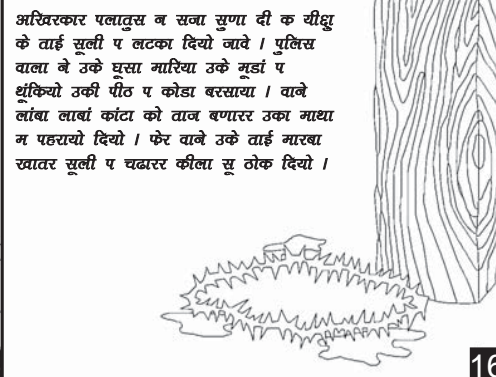 अखिरकार पलातुस न सजा सुणा दी क यीशु
के ताई सूली प लटका दियो जावे । पुलिस
वाला ने उके घूसा मारिया उके मूडां प
थूंकियो उकी पीठ प कोडा बरसाया । वाने
लांबा लाबां कांटा को ताज बणारर उका माथा
म पहरायो दियो । फेर वाने उके ताई मारबा
खातर सूली प चढारर कीला सू ठोक दियो ।
16